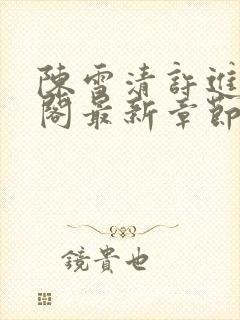 陳雪清許進
閣最新章節
鏡貴也